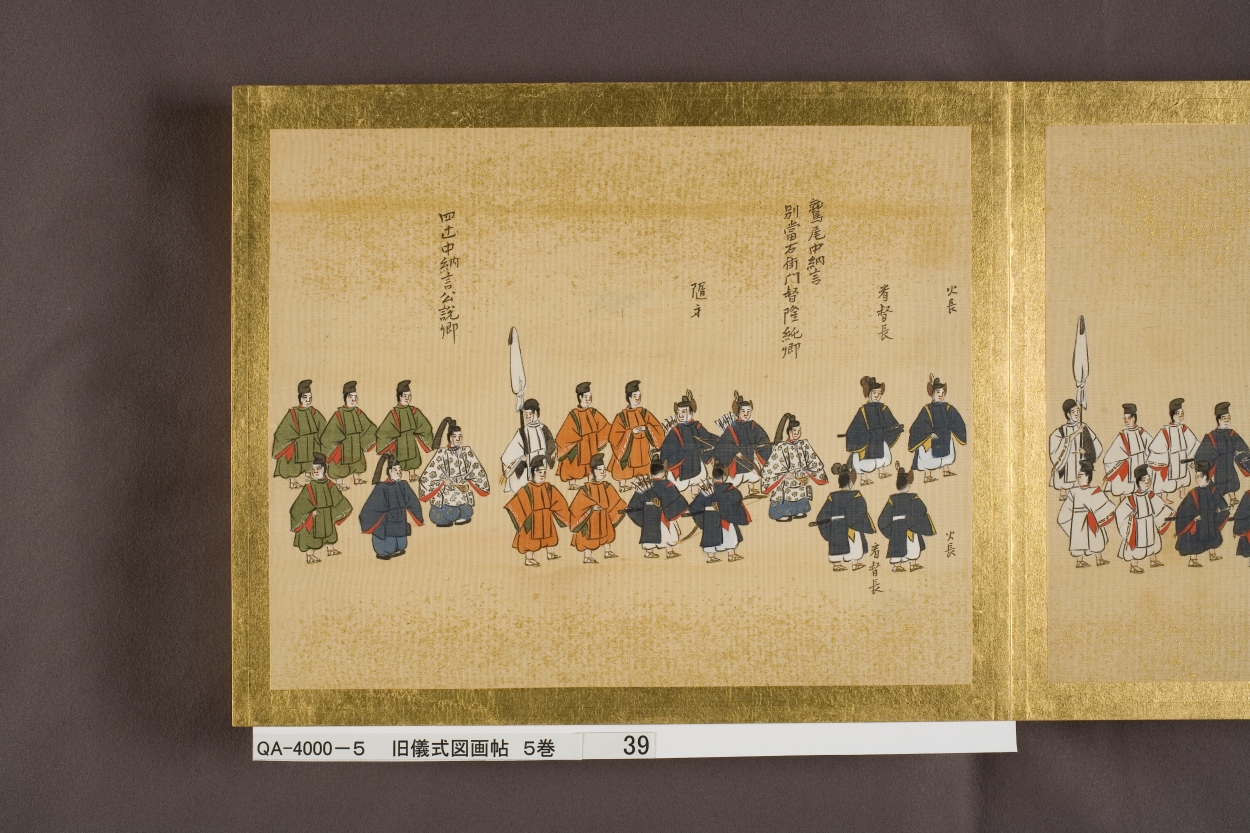 火長
看督長
鷲尾中納言
別當右衛門督隆純卿
隨身
四辻中納言公説卿
火長
看督長
QA-4000-5 旧儀式図画帖 5巻 39